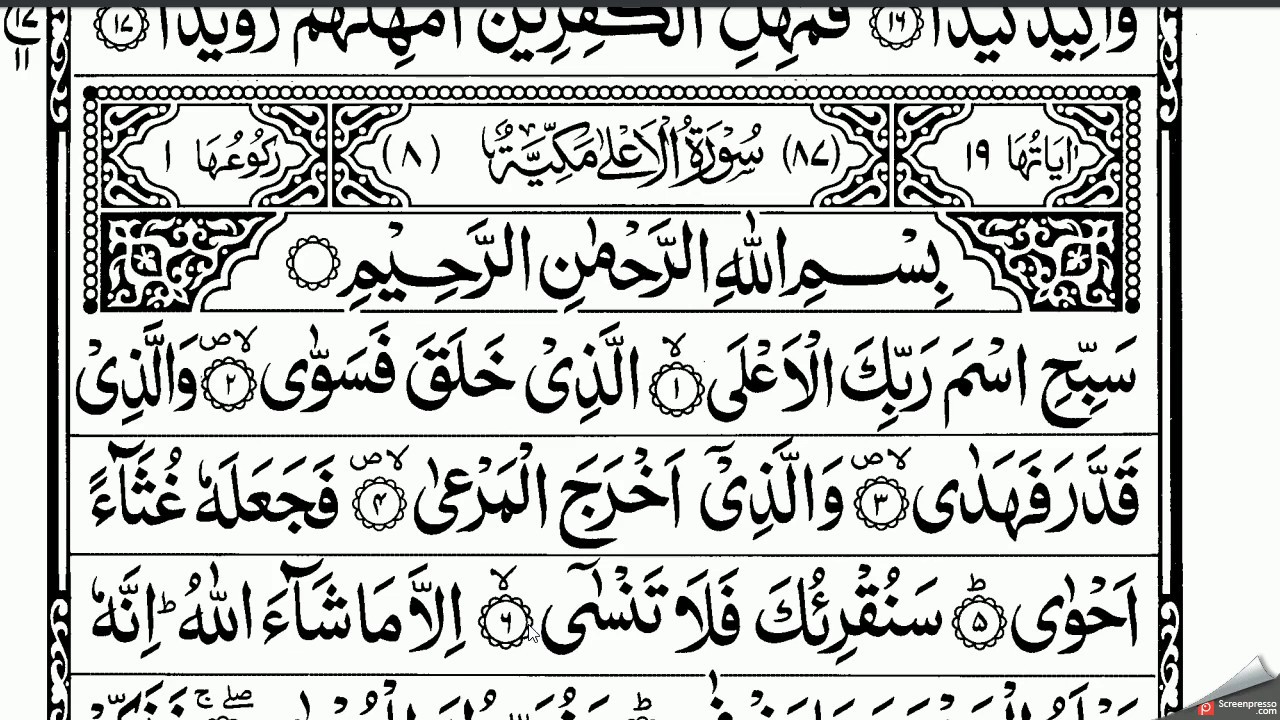 وَّاَكِيْدُ كَيْدًا ۱۶ فَمَهِّلِ الْكٰفِرِيْنَ اَمْهِلْهُمْ رُوَيْدًا ۱۷
اٰيَاتُهَا ۱۹ (۸۷) سُوْرَةُ الْاَعْلٰى مَكِّيَّةٌ (۸) رُكُوْعُهَا ۱
بِسْمِ اللّٰهِ الرَّحْمٰنِ الرَّحِيْمِ
سَبِّحِ اسْمَ رَبِّكَ الْاَعْلَى ۱ لا الَّذِىْ خَلَقَ فَسَوّٰى ۲ لاص وَالَّذِىْ
قَدَّرَ فَهَدٰى ۳ لاص وَالَّذِىْٓ اَخْرَجَ الْمَرْعٰى ۴ لاص فَجَعَلَهٗ غُثَآءً
اَحْوٰى ۵ ط سَنُقْرِئُكَ فَلَا تَنْسٰٓى ۶ لا اِلَّا مَا شَآءَ اللّٰهُ ط اِنَّهٗ
Screenpresso
.com